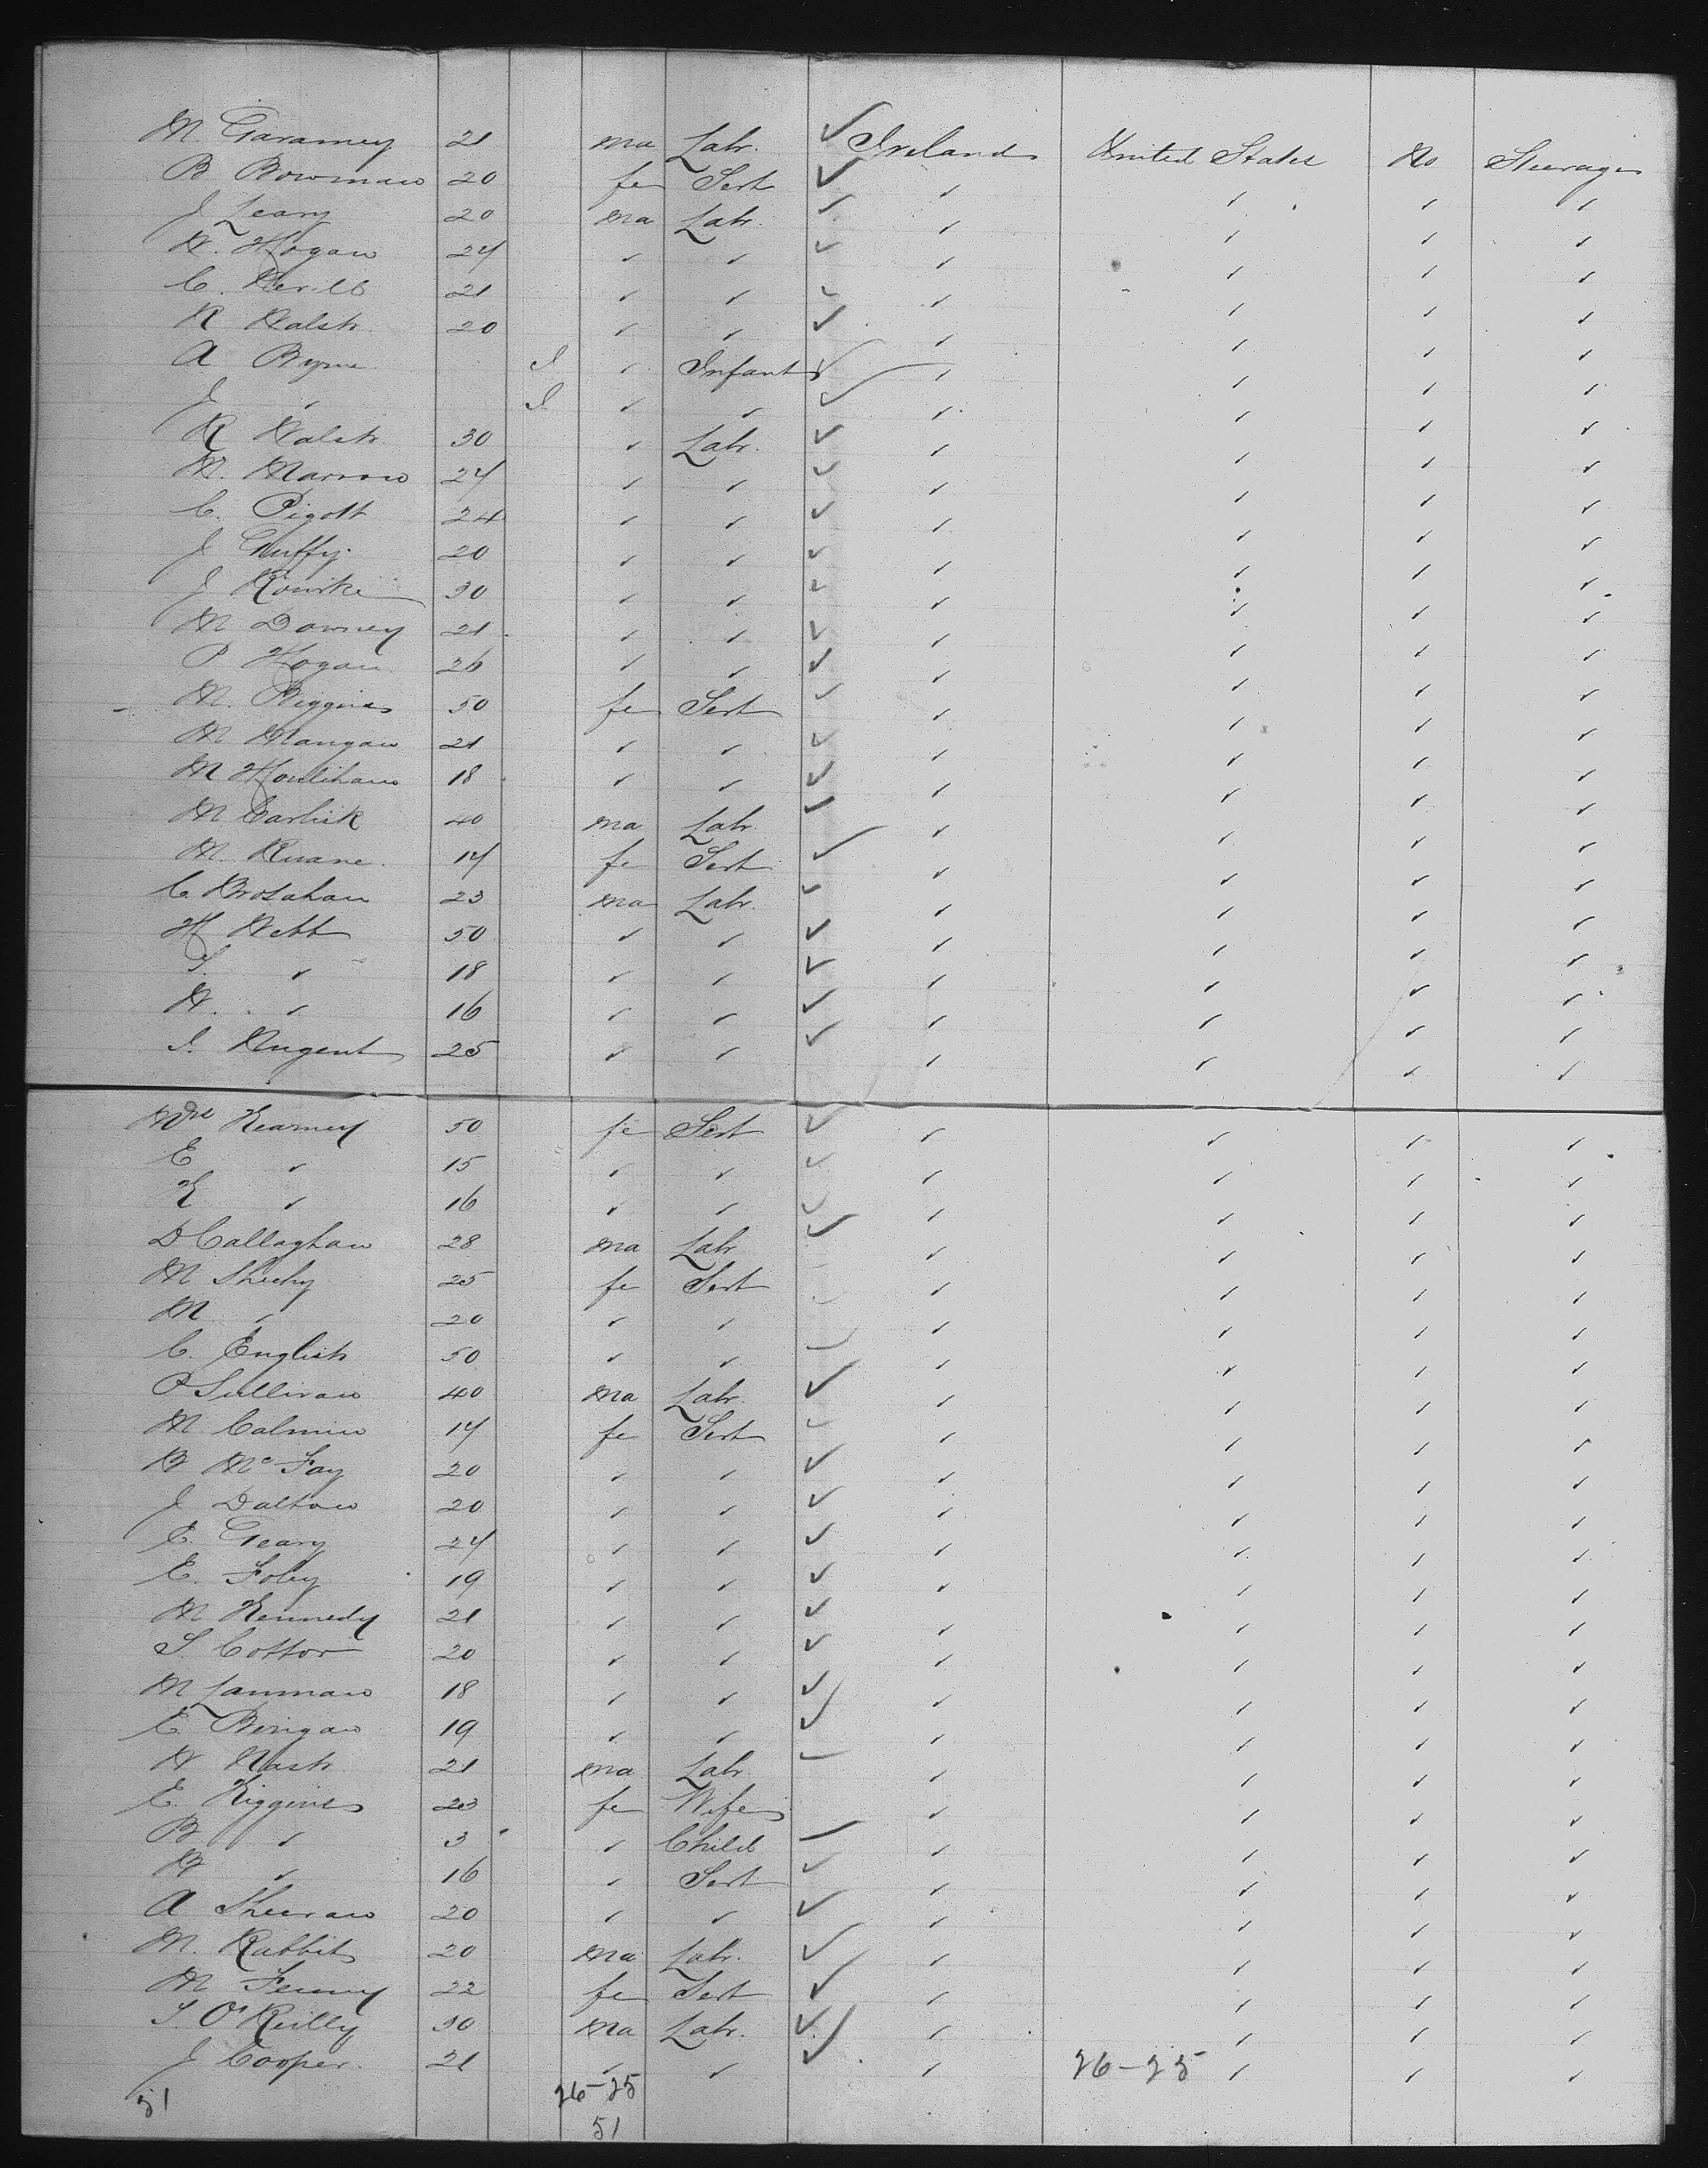 M. Garamey 21 ma Labr. ✓ Ireland United States No Steerage
B Bowman 20 fe Sert ✓ ✓ ✓ ✓ ✓
J Leary 20 ma Labr. ✓ ✓ ✓ ✓ ✓
W. Hogan 24 ✓ ✓ ✓ ✓ ✓ ✓ ✓
C. 21 ✓ ✓ ✓ ✓ ✓ ✓ ✓
R Walsh 20 ✓ ✓ ✓ ✓ ✓ ✓ ✓
A Byrne I ✓ Infant ✓ ✓ ✓ ✓ ✓
J ✓ I ✓ ✓ ✓ ✓ ✓ ✓ ✓
R Walsh 30 ✓ Labr. ✓ ✓ ✓ ✓ ✓
M. Marrow 24 ✓ ✓ ✓ ✓ ✓ ✓ ✓
C. Pigott 24 ✓ ✓ ✓ ✓ ✓ ✓ ✓
J Guffy. 20 ✓ ✓ ✓ ✓ ✓ ✓ ✓
J Rourke 30 ✓ ✓ ✓ ✓ ✓ ✓ ✓
M Downey 21 ✓ ✓ ✓ ✓ ✓ ✓ ✓
P Hogan 26 ✓ ✓ ✓ ✓ ✓ ✓ ✓
M. Biggins 50 fe Sert ✓ ✓ ✓ ✓ ✓
M Mangan 21 ✓ ✓ ✓ ✓ ✓ ✓ ✓
M Houlihan 18 ✓ ✓ ✓ ✓ ✓ ✓ ✓
M Carlick 40 ma Labr ✓ ✓ ✓ ✓ ✓
M. Ruane. 14 fe Sert ✓ ✓ ✓ ✓ ✓
C Brosahan 23 ma Labr. ✓ ✓ ✓ ✓ ✓
H Webb 50 ✓ ✓ ✓ ✓ ✓ ✓ ✓
S. ✓ 18 ✓ ✓ ✓ ✓ ✓ ✓ ✓
W. ✓ 16 ✓ ✓ ✓ ✓ ✓ ✓ ✓
J. Nugent 25 ✓ ✓ ✓ ✓ ✓ ✓ ✓
Mrs Kearney 50 fe Sert ✓ ✓ ✓ ✓ ✓
E ✓ 15 ✓ ✓ ✓ ✓ ✓ ✓ ✓
K ✓ 16 ✓ ✓ ✓ ✓ ✓ ✓ ✓
D Callaghan 28 ma Labr ✓ ✓ ✓ ✓ ✓
M Sheehy 25 fe Sert ✓ ✓ ✓ ✓
M ✓ 20 ✓ ✓ ✓ ✓ ✓ ✓ ✓
C. English 50 ✓ ✓ ✓ ✓ ✓ ✓ ✓
P Sullivan 40 ma Labr. ✓ ✓ ✓ ✓ ✓
M Calmin 14 fe Sert ✓ ✓ ✓ ✓ ✓
B McFay 20 ✓ ✓ ✓ ✓ ✓ ✓ ✓
J Dalton 20 ✓ ✓ ✓ ✓ ✓ ✓ ✓
E. Geary 24 ✓ ✓ ✓ ✓ ✓ ✓ ✓
E. Foley 19 ✓ ✓ ✓ ✓ ✓ ✓ ✓
M Kennedy 21 ✓ ✓ ✓ ✓ ✓ ✓ ✓
S. Cottor 20 ✓ ✓ ✓ ✓ ✓ ✓ ✓
M Lanman 18 ✓ ✓ ✓ ✓ ✓ ✓ ✓
E Berigan 19 ✓ ✓ ✓ ✓ ✓ ✓ ✓
W Nash 21 ma Labr. ✓ ✓ ✓ ✓ ✓
E. Kiggins 23 fe Wife ✓ ✓ ✓ ✓
B ✓ 3 ✓ Child ✓ ✓ ✓ ✓ ✓
W ✓ 16 ✓ Sert ✓ ✓ ✓ ✓ ✓
A Sheeran 20 ✓ ✓ ✓ ✓ ✓ ✓ ✓
M. Rabbit 20 ma Labr. ✓ ✓ ✓ ✓ ✓
M Feeney 22 fe Sert ✓ ✓ ✓ ✓ ✓
S. O'Reilly 30 ma Labr. ✓ ✓ ✓ ✓ ✓
J Cooper. 21 ✓ ✓ ✓ ✓ ✓ ✓ ✓
51 26-25 26-25
51